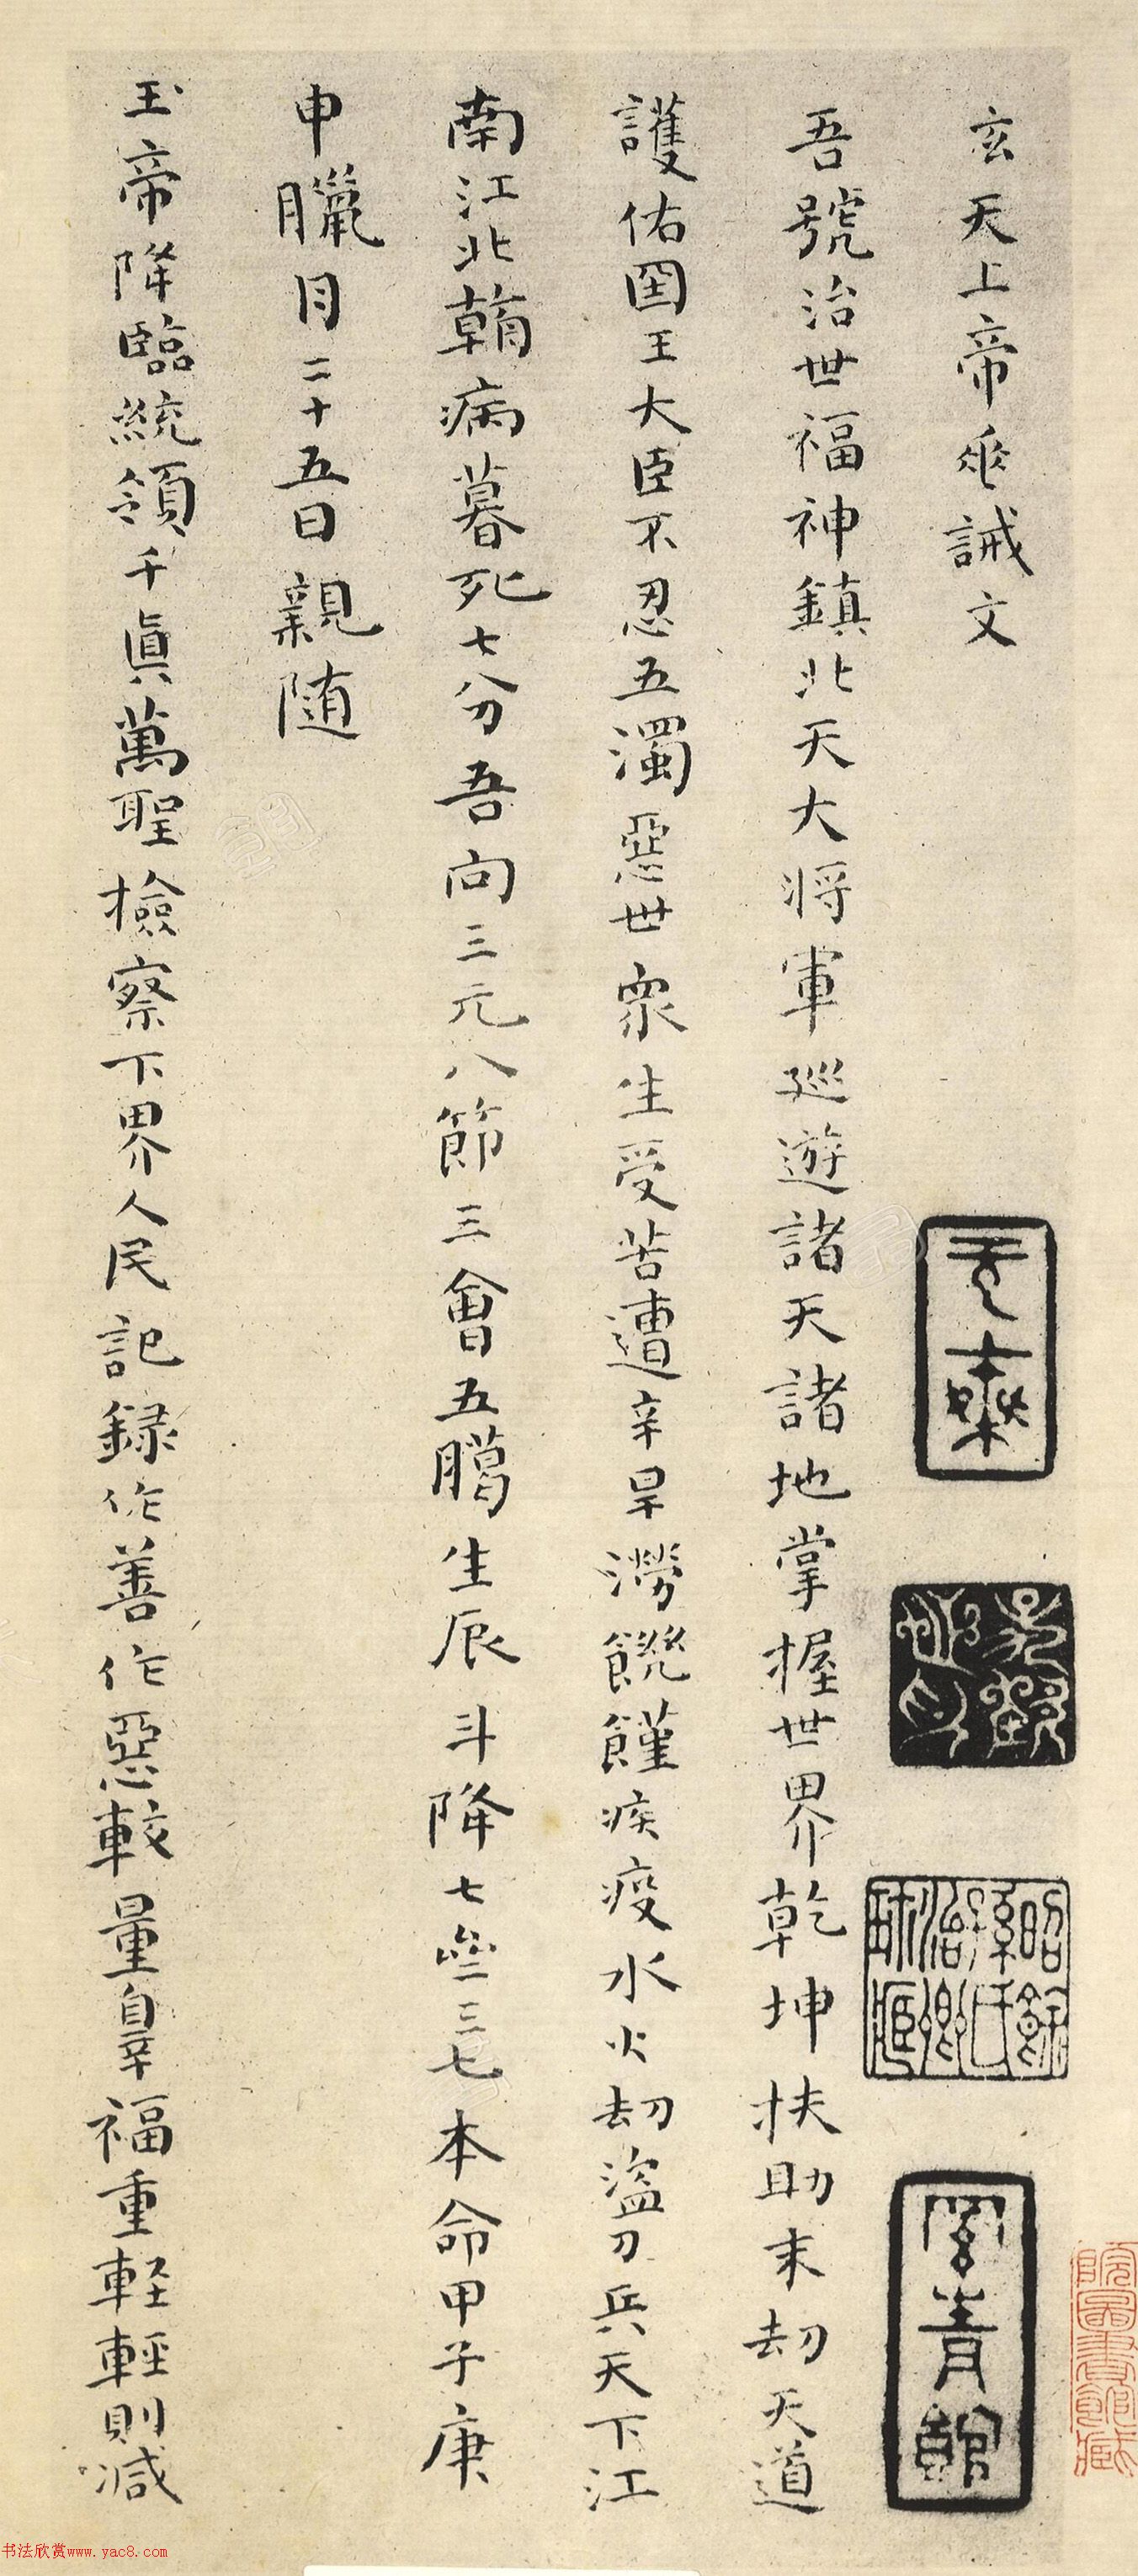 玄天上帝垂誡文
吾號治世福神鎮北天大將軍巡遊諸天諸地掌握世界乾坤扶助末劫天道
護佑國王大臣不忍五濁惡世衆生受苦遭辛旱澇饑饉疾疫水火劫盜刀兵天下江
南江北朝病暮死七分吾向三元八節三會五臘生辰斗降七壘三七本命甲子庚
申臘月二十五日親随
玉帝降臨統領千真萬聖檢察下界人民記録作善作惡較量辠福重輕輕則減
雲青館
院圖書館藏
书法欣赏www.yac8.com